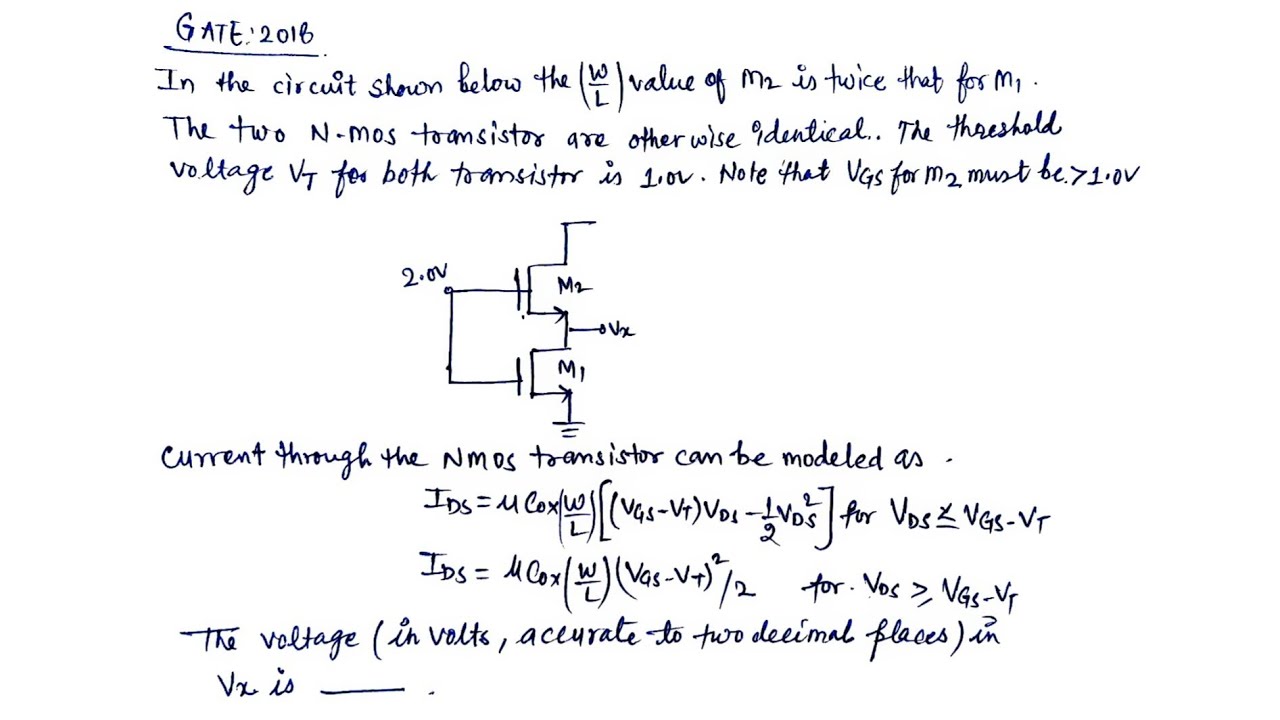 GATE:2018
In the circuit shown below the (W/L) value of M2 is twice that for M1.
The two N-MOS transistor are otherwise identical.. The threshold
voltage VT for both transistor is 1.0V. Note that VGS for M2 must be >1.0V
2.0V
M2
Vx
M1
Current through the NMOS transistor can be modeled as .
IDS = μCox(W/L)[(VGS-VT)VDS - 1/2 VDS²] for VDS ≤ VGS-VT
IDS = μCox(W/L)(VGS-VT)²/2 for. VDS ≥ VGS-VT
The voltage (in volts, accurate to two decimal places) in
Vx is ____ .